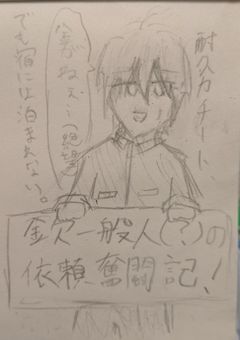 耐久力チート、
でも宿には泊まれない。
金がねぇ…(絶望)
金欠一般人(?)の
依頼奮闘記!